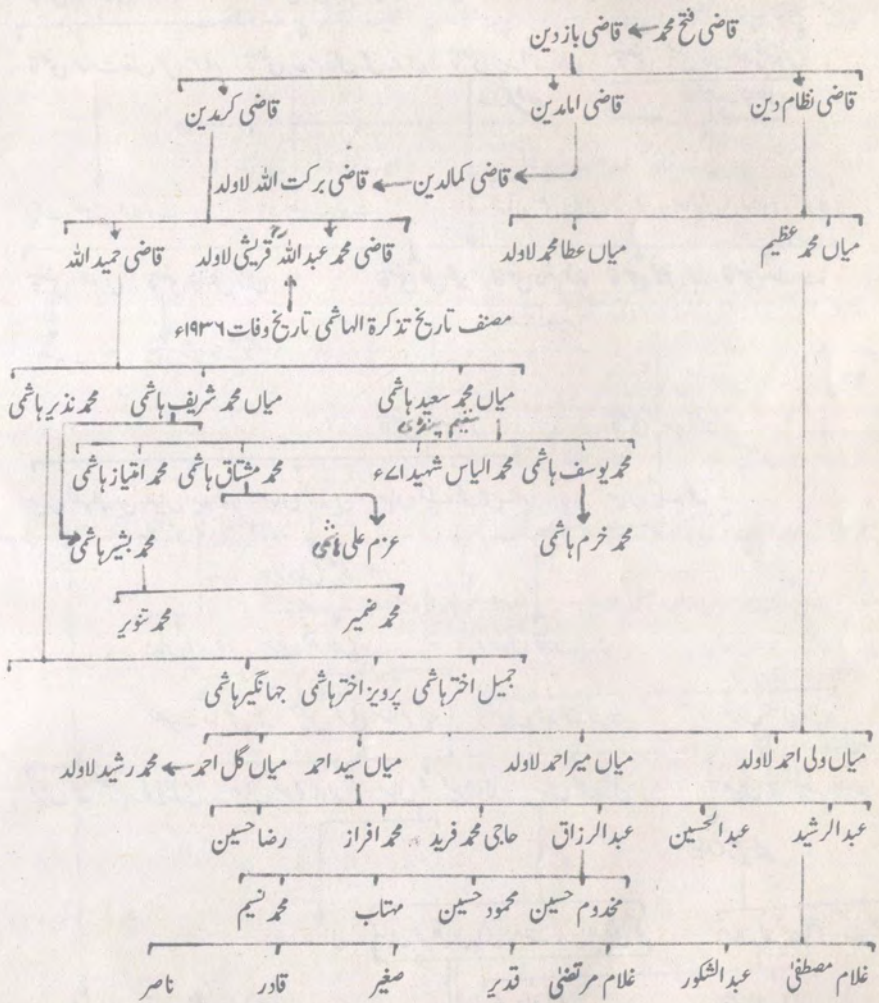 قاضی فتح محمد ← قاضی باز دین
قاضی نظام دین قاضی امامدین قاضی کرمدین
قاضی کمالدین ← قاضی برکت اللہ لاولد
میاں محمد عظیم میاں عطا محمد لاولد قاضی محمد عبد اللہ قریشی لاولد قاضی حمید اللہ
مصنف تاریخ تذکرۃ الہاشمی تاریخ وفات ۱۹۳۶ء
میاں محمد سعید ہاشمی میاں محمد شریف ہاشمی محمد نذیر ہاشمی
محمد یوسف ہاشمی محمد الیاس شہید ۷۱ء محمد مشتاق ہاشمی محمد امتیاز ہاشمی
محمد خرم ہاشمی عزم علی ہاشمی محمد بشیر ہاشمی
محمد ضمیر محمد تنویر
جمیل اختر ہاشمی پرویز اختر ہاشمی جہانگیر ہاشمی
میاں ولی احمد لاولد میاں میر احمد لاولد میاں سید احمد میاں گل احمد ← محمد رشید لاولد
عبد الرشید عبد الحسین عبد الرزاق حاجی محمد فرید محمد افراز رضا حسین
مخدوم حسین محمود حسین مہتاب محمد نسیم
غلام مصطفیٰ عبد الشکور غلام مرتضیٰ قدیر صغیر قادر ناصر